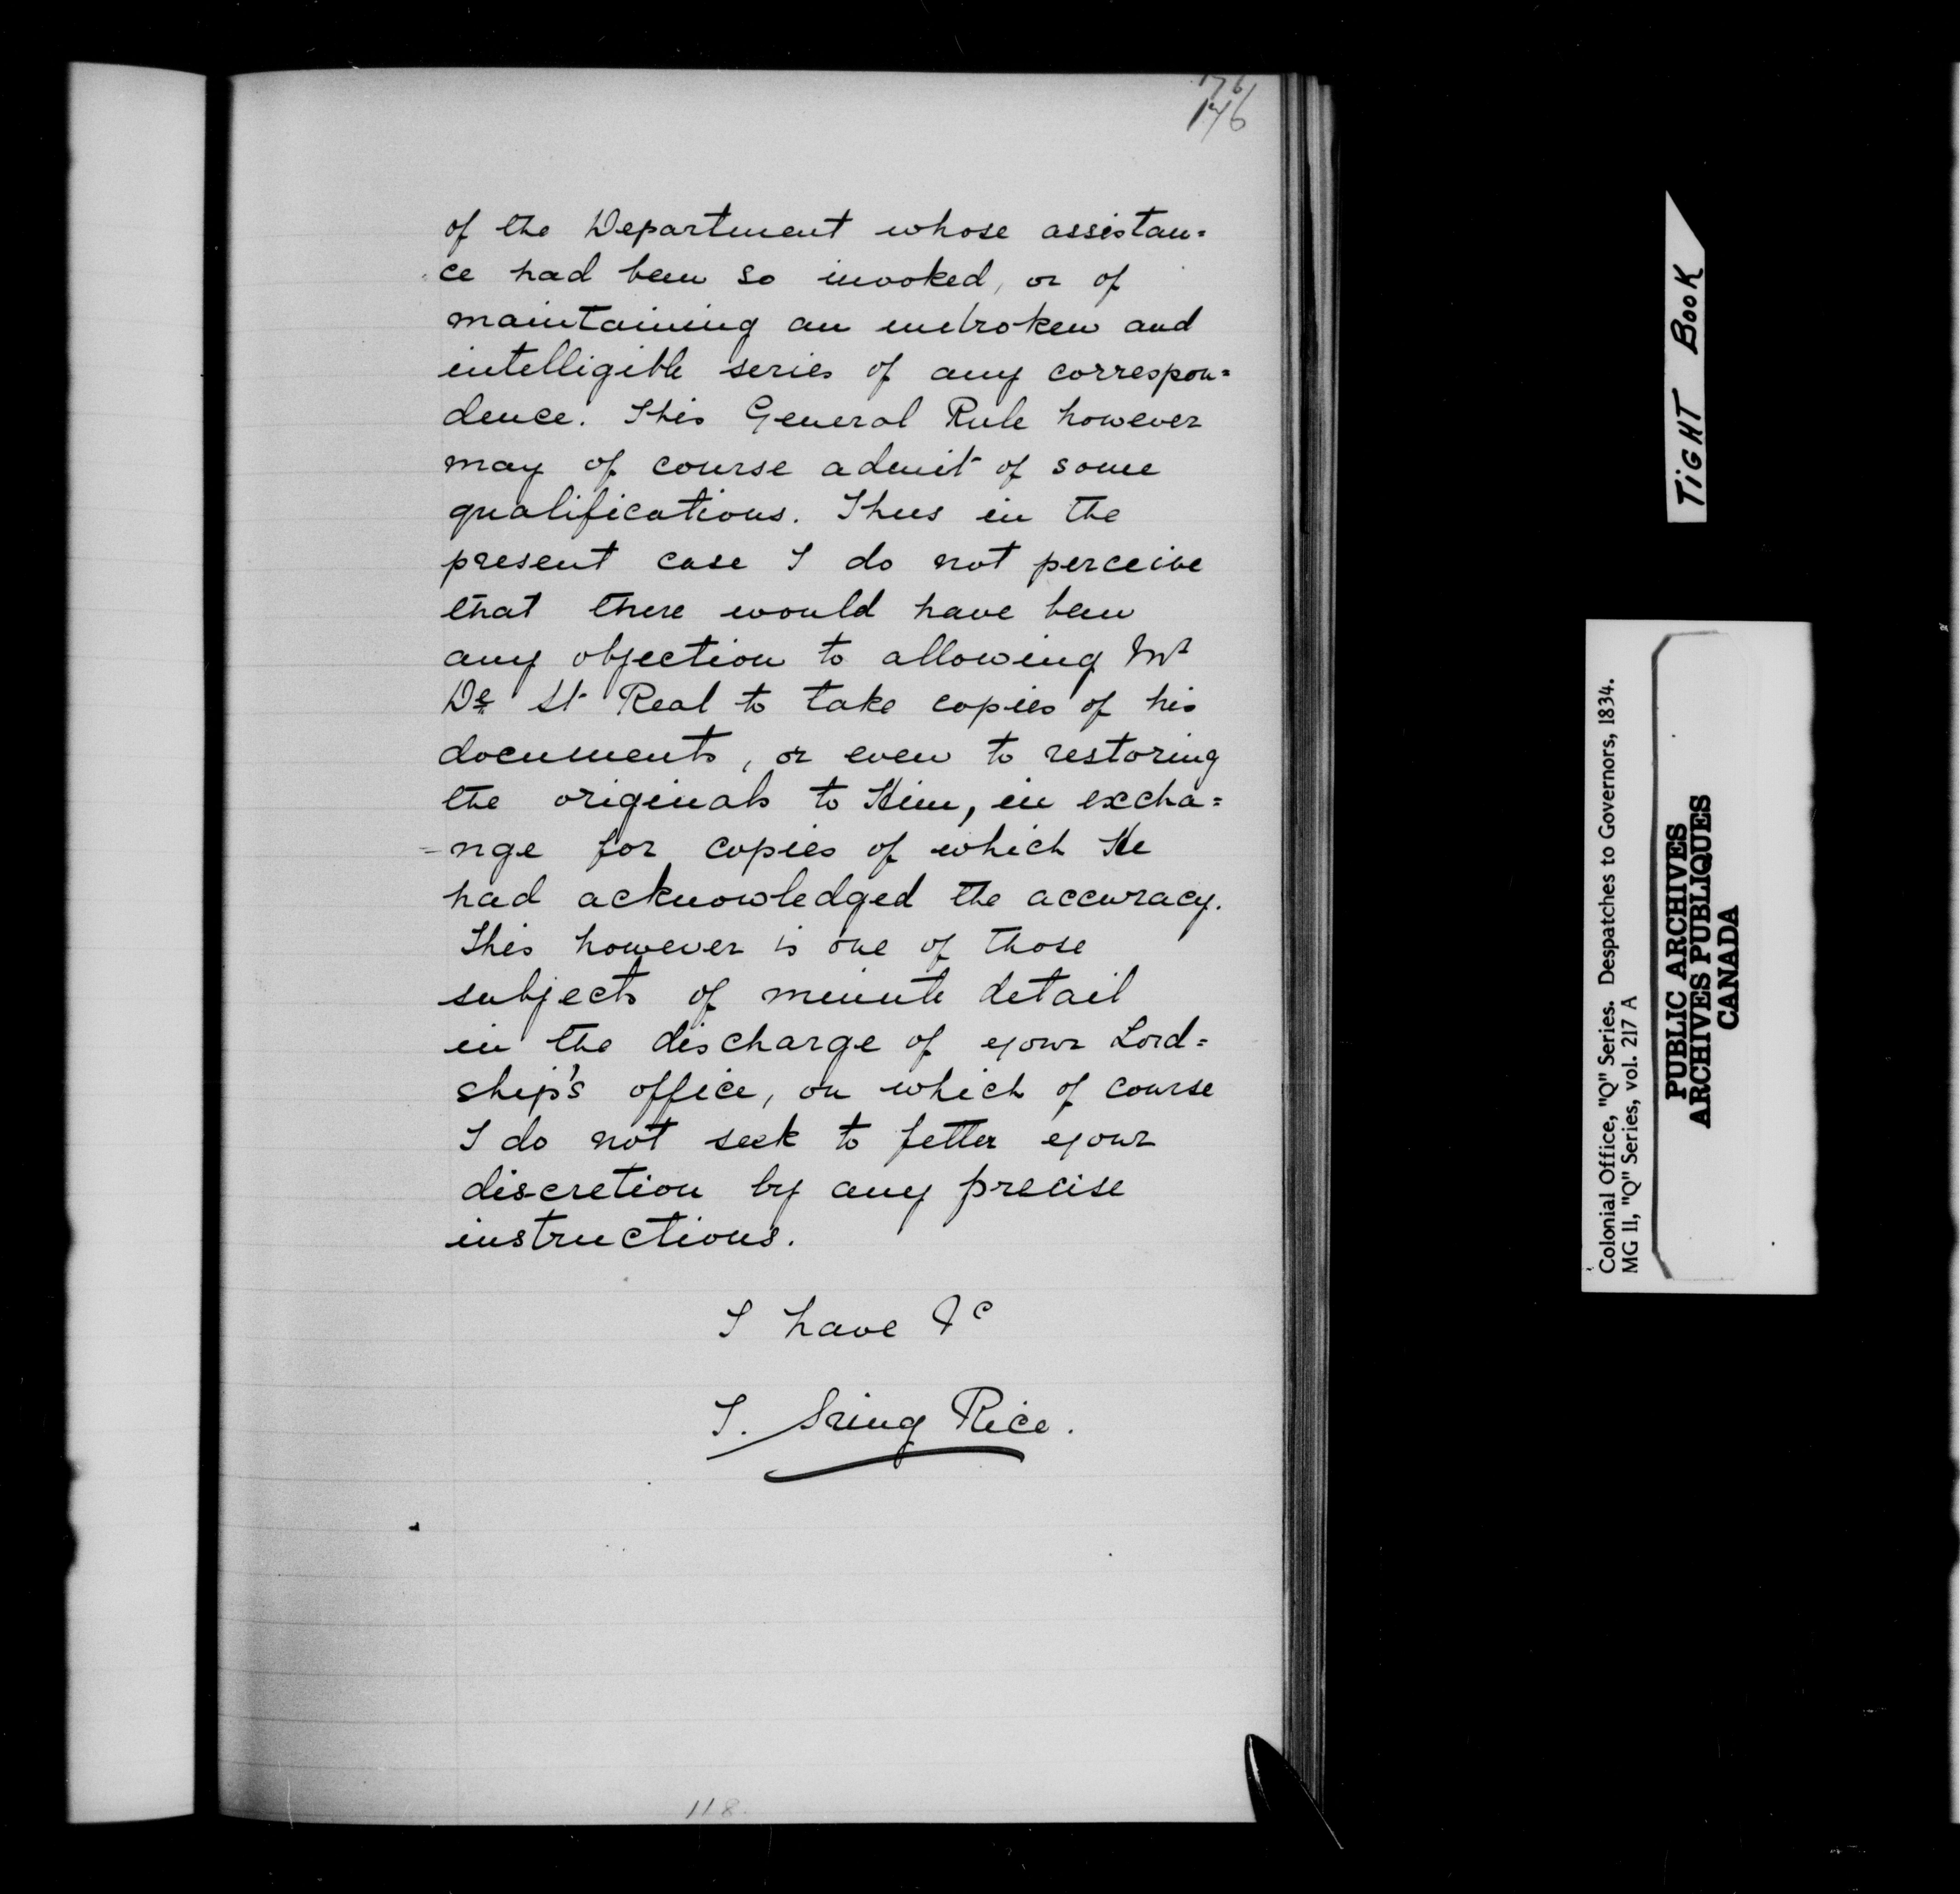 176
146
of the Department whose assistan=
ce had been so invoked, or of
maintaining an unbroken and
intelligible series of any correspon=
dence. This General Rule however
may of course admit of some
qualifications. Thus in the
present case I do not perceive
that there would have been
any objection to allowing Mr
De St Real to take copies of his
documents, or even to restoring
the originals to Him, in excha=
=nge for copies of which He
had acknowledged the accuracy.
This however is one of those
subjects of minute detail
in the discharge of your Lord=
ship's office, on which of course
I do not seek to fetter your
discretion by any precise
instructions.
I have &c
T. Sring Rice.
118
TIGHT BOOK
Colonial Office, "Q" Series. Despatches to Governors, 1834.
MG 11, "Q" Series, vol. 217 A
PUBLIC ARCHIVES
ARCHIVES PUBLIQUES
CANADA